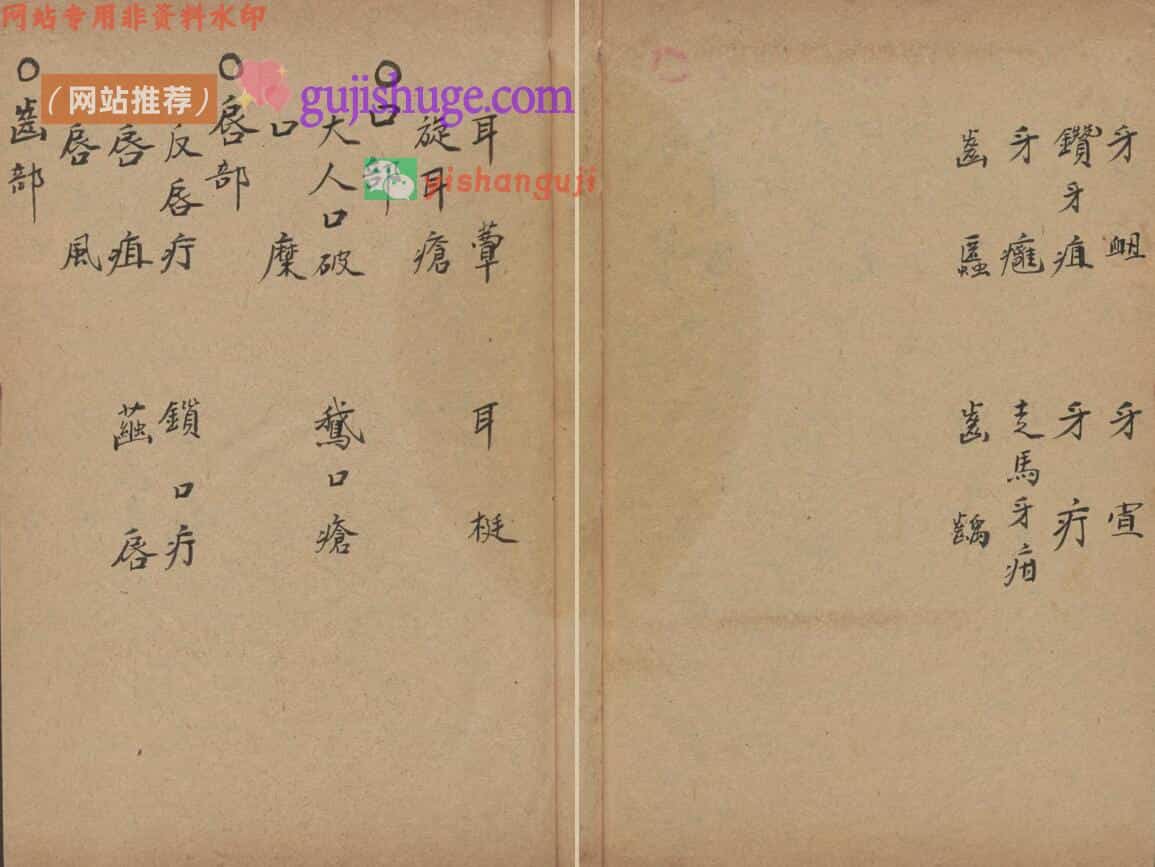 网站专用非资料水印
(网站推荐)
gujishuge.com
yishanguji
耳蕈　耳梃
旋耳瘡
○口部
大人口破　鵝口瘡
口糜
○唇部
反唇疔　鎖口疔
唇疽　繭唇
唇風
○齒部
牙衄　牙宣
鑽牙疽　牙疔
牙癰　走馬牙疳
齒䘌　齒齲